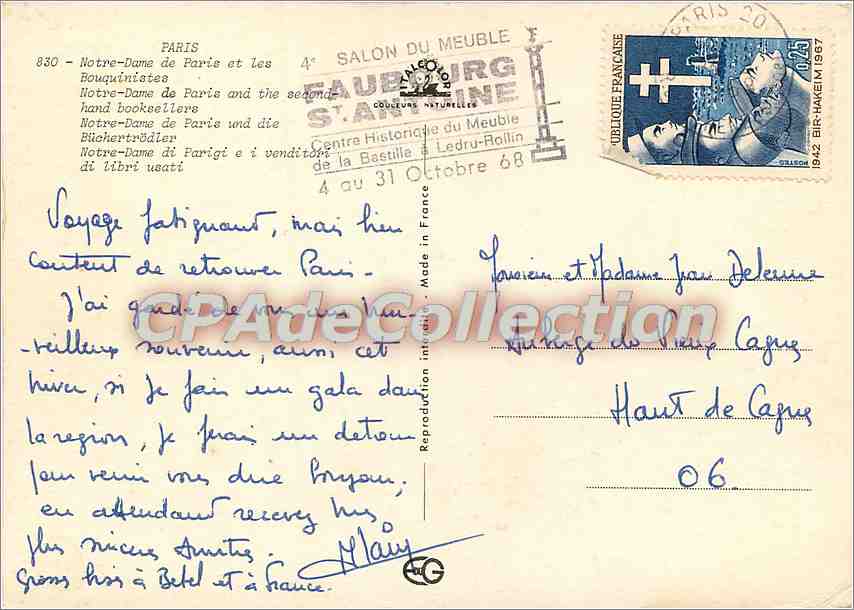 PARIS
830 - Notre-Dame de Paris et les
Bouquinistes
Notre-Dame de Paris and the second-
hand booksellers
Notre-Dame de Paris und die
Büchertrödler
Notre-Dame di Parigi e i venditori
di libri usati
4e SALON DU MEUBLE
FAUBOURG
ST ANTOINE
Centre Historique du Meuble
de la Bastille à Ledru-Rollin
4 au 31 Octobre 68
ITALCOLOR
COULEURS NATURELLES
PARIS 20
RÉPUBLIQUE FRANÇAISE
0,25
1942 BIR-HAKEIM 1967
POSTES
Voyage fatiguant, mais bien
content de retrouver Paris-
J'ai gardé de vous un mer-
-veilleux souvenir, aussi cet
hiver, si je fais un gala dans
la region, je ferais un detour
pour venir vous dire Bonjour,
en attendant recevez mes
plus sincères Amitiés.
Grosses bises à Bebel et à France.
Reproduction interdite - Made in France
Monsieur et Madame Jean
Auberge du Vieux Cagnes
Haut de Cagnes
06.
CPAdeCollection